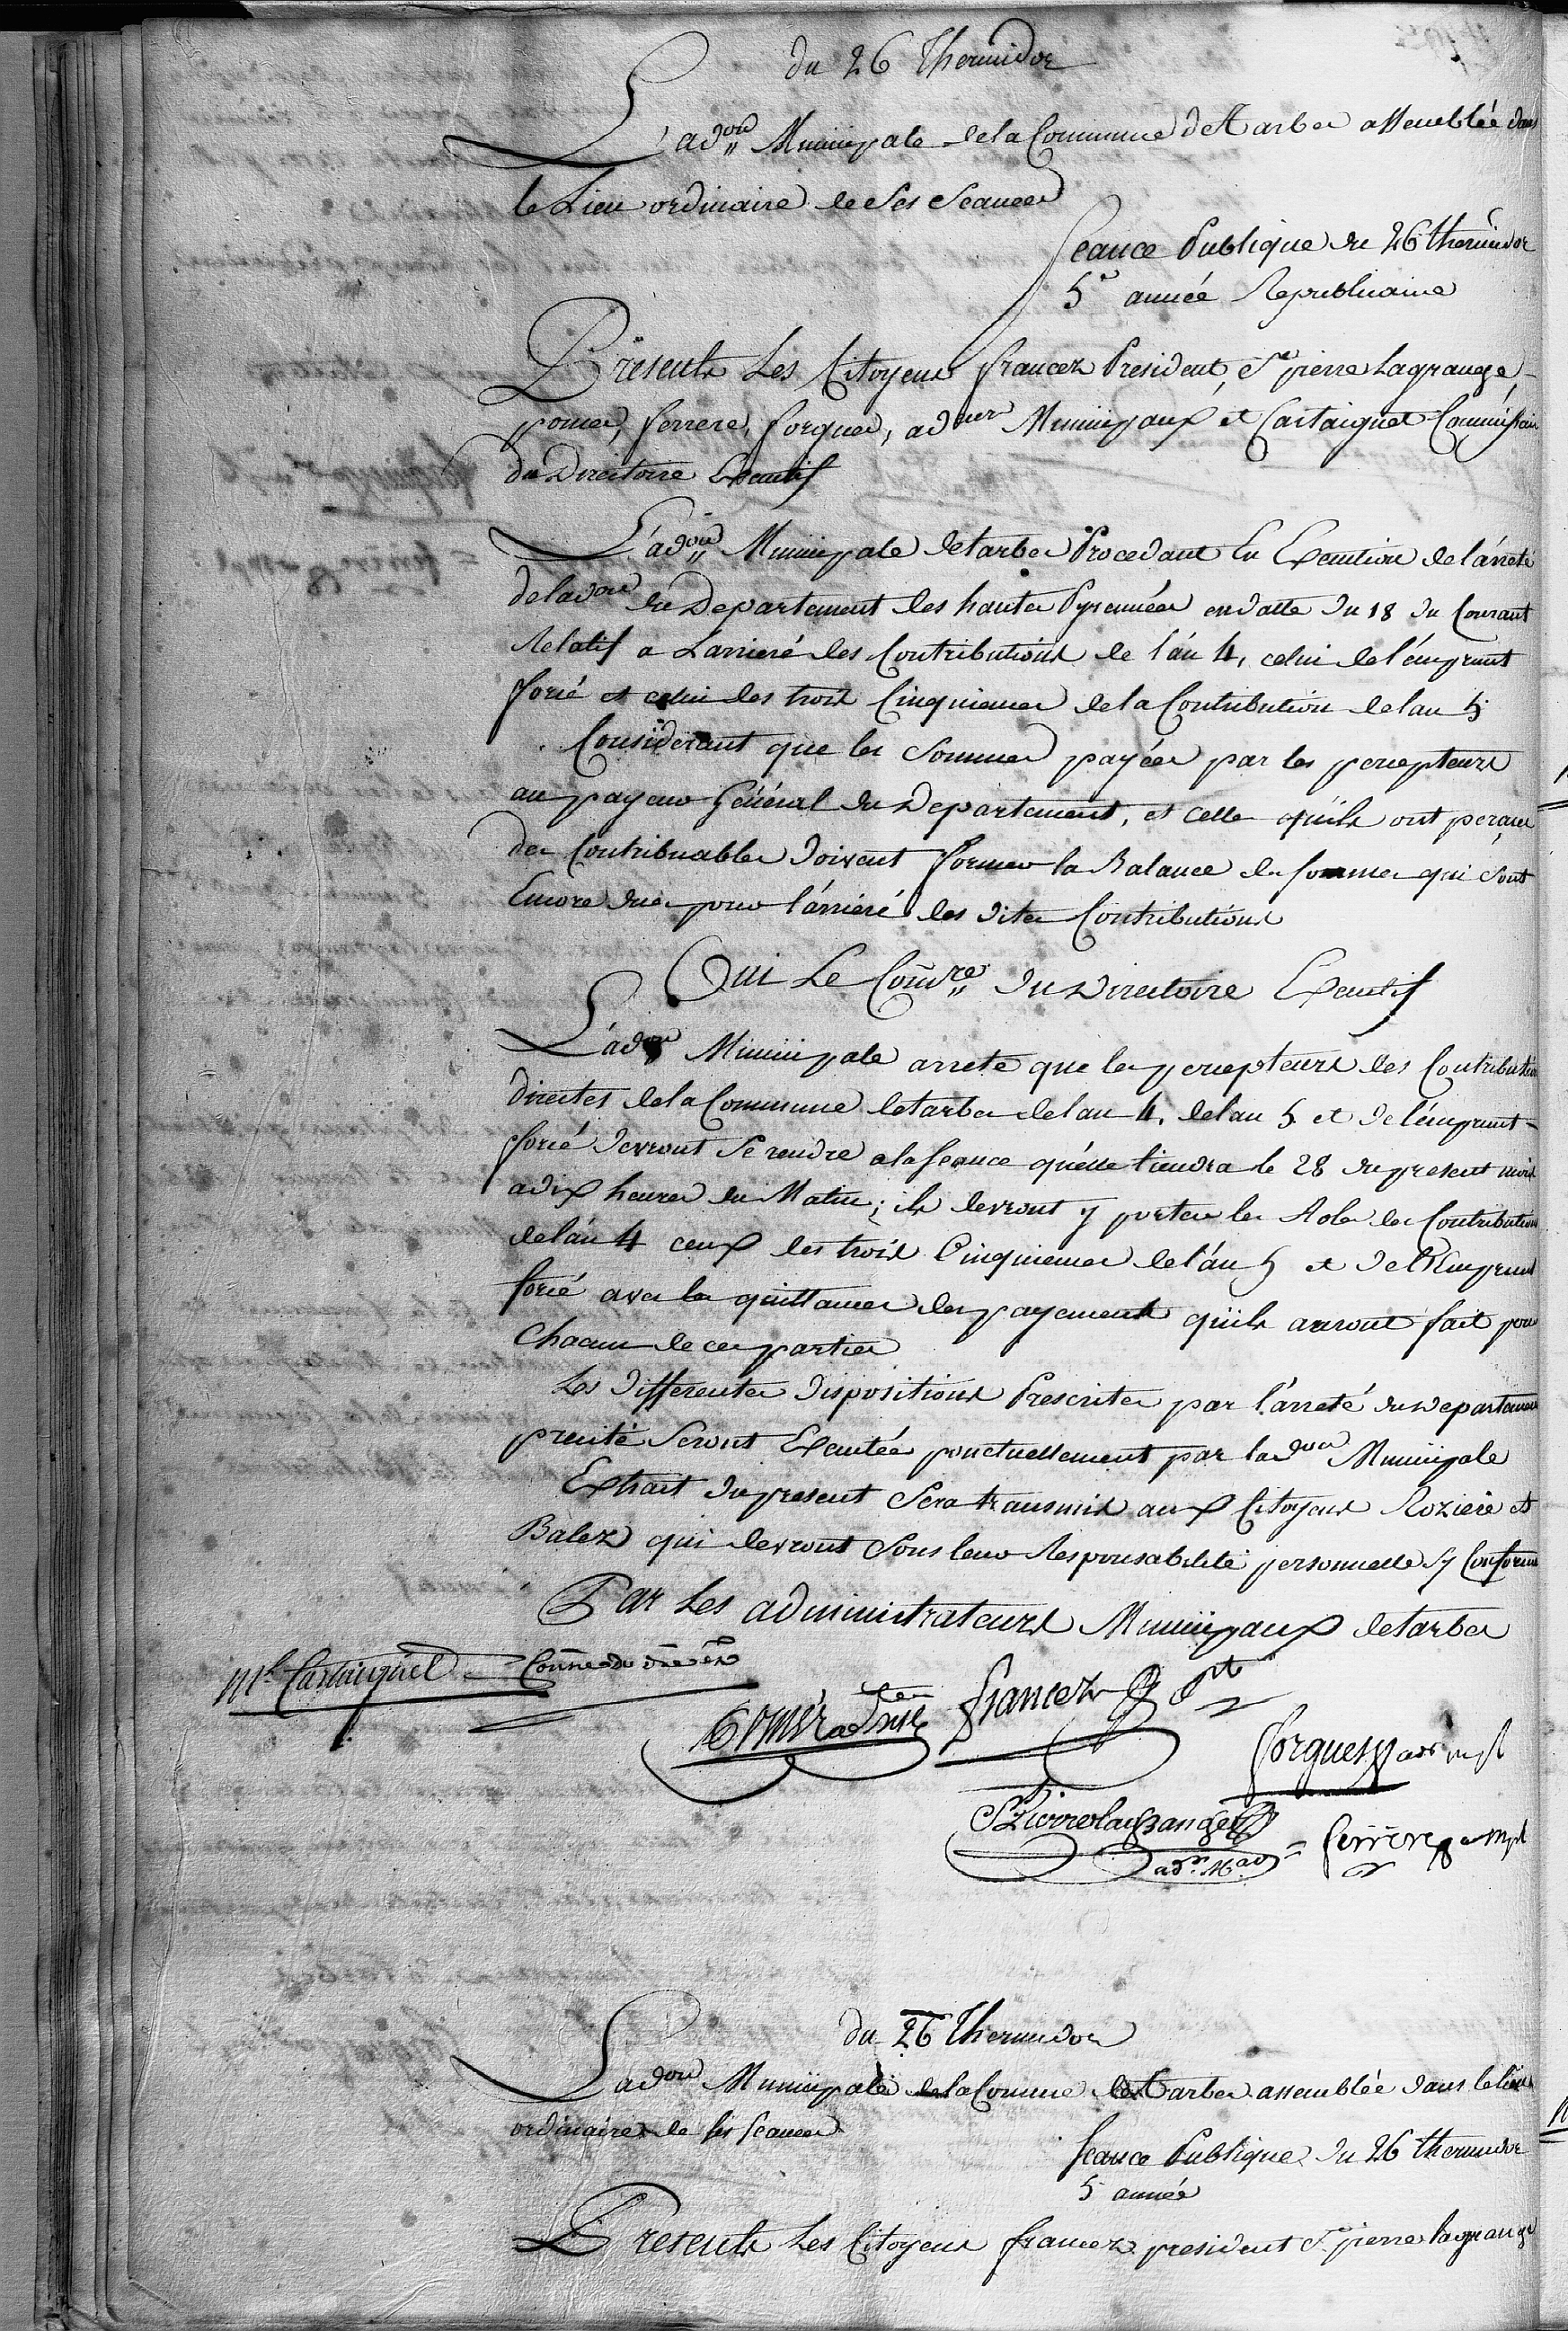 du 26 Thermidor
L'ad.on Municipale de la Commune de Tarbes assemblée dans
le Lieu ordinaire de Ses Seances
Seance Publique du 26 thermidor
5e année Republicaine
Présents Les Citoyens francez President, St pierre Lagrange,
pomier, ferrere, forgues, adeurs Municipaux et Castaignet Commissaire
du Directoire Executif
L'ad.on Municipale de tarbes Procedant En Execution de l'arreté
de ladon du Departement des hautes Pyrennées en datte du 18 du Courant
Relatif a Larrieré des Contributions de l'an 4, celui de l'emprunt
forcé et celui des trois Cinquiemes de la Contribution de lan 5
Considerant que les Sommes payées par les percepteurs
au payeur Général du Departement, et celles qu'ils ont perçues
des Contribuables doivent former la Balance des sommes qui sont
Encore dues pour l'arriéré des dites Contributions
Oui Le Comre du Directoire Executif
L'adon Municipale arrete que les percepteurs des Contributions
directes de la Commune de tarbes de lan 4. de lan 5 et de l'emprunt
forcé devront Se rendre a la Seance qu'elle tiendra le 28 du present mois
a dix heures du Matin; ils devront y porter les Roles des Contributions
de l'an 4 ceux des trois Cinquiemes de l'an 5 et de l'Emprunt
forcé avec les quittances des payements qu'ils auront fait pour
Chacune de ces parties
Les differentes dispositions Prescrites par l'arreté du Departement
precité Seront Executées ponctuellement par ladon Municipale
Extrait du present Sera transmis aux Citoyens Roziere et
Balez qui devront Sous leur Responsabilité personnelle Sy Conformer
Par Les administrateurs Municipaux de tarbes
Ml Castaignet Comre du dre ex
Pomier adm francez Pt
forgues ad mpl
St Pierre lagrange
adr. Mal = ferrere a mpl
du 26 Thermidor
Ladon Municipale de la Comune de Tarbes assemblée dans le lieu
ordinaire de ses seances
Seance Publique du 26 thermidor
5 année
Presents Les Citoyens francez president St pierre lagrange